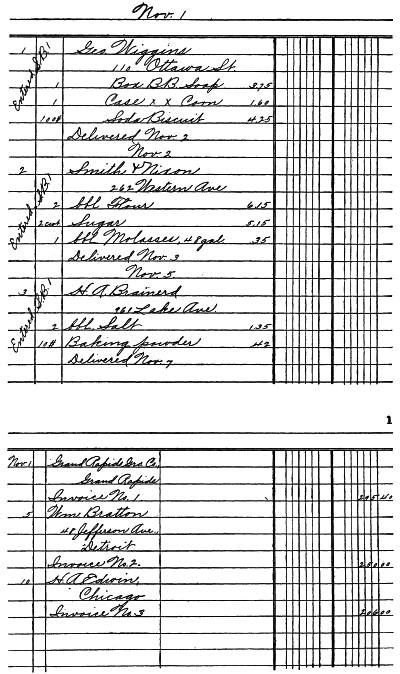 Nov. 1
1 Geo. Wiggins
110 Ottawa St.
1 Box B.B. Soap 3.75
1 Case x x Corn 1.60
100# Soda Biscuit 4.25
Delivered Nov. 2
Entered S.B.1
Nov. 2
2 Smith & Nixon
262 Western Ave
2 bbl. Flour 6.15
2 cwt Sugar 5.15
1 bbl. Molasses, 48 gal. .35
Delivered Nov. 3
Entered S.B.1
Nov. 5
3 H. A. Brainerd
961 Lake Ave.
2 bbl. Salt 1.35
10# Baking powder .42
Delivered Nov. 7
Entered S.B.1
1
Nov. 1 Grand Rapids Gro. Co.,
Grand Rapids
Invoice No. 1 205 40
5 Wm. Bratton
48 Jefferson Ave.,
Detroit
Invoice No. 2. 250 00
10 H. A. Edwin,
Chicago
Invoice No. 3 206 00